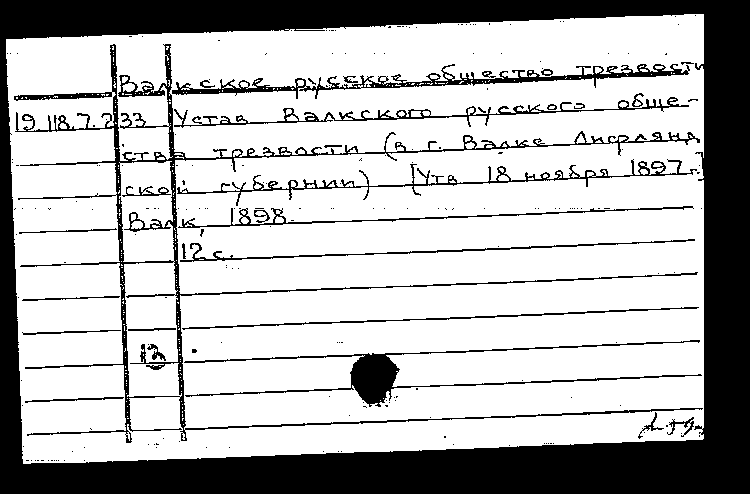 Валкское русское общество трезвости
19.118.7.233 Устав Валкского русского обще-
ства трезвости (в г. Валке Лифлянд
ской губернии) [Утв 18 ноября 1897 г.]
Валк, 1898.
12 с.